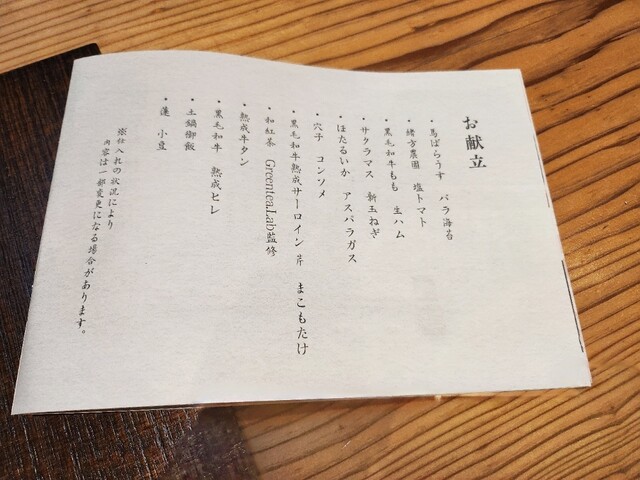 お献立
・馬ばらうす バラ海苔
・緒方農園 塩トマト
・黒毛和牛もも 生ハム
・サクラマス 新玉ねぎ
・ほたるいか アスパラガス
・穴子 コンソメ
・黒毛和牛熟成サーロイン 芹 まこもたけ
・和紅茶 GreenteaLab監修
・熟成牛タン
・黒毛和牛 熟成ヒレ
・土鍋御飯
・蓮 小豆
※仕入れの状況により
内容は一部変更になる場合があります。